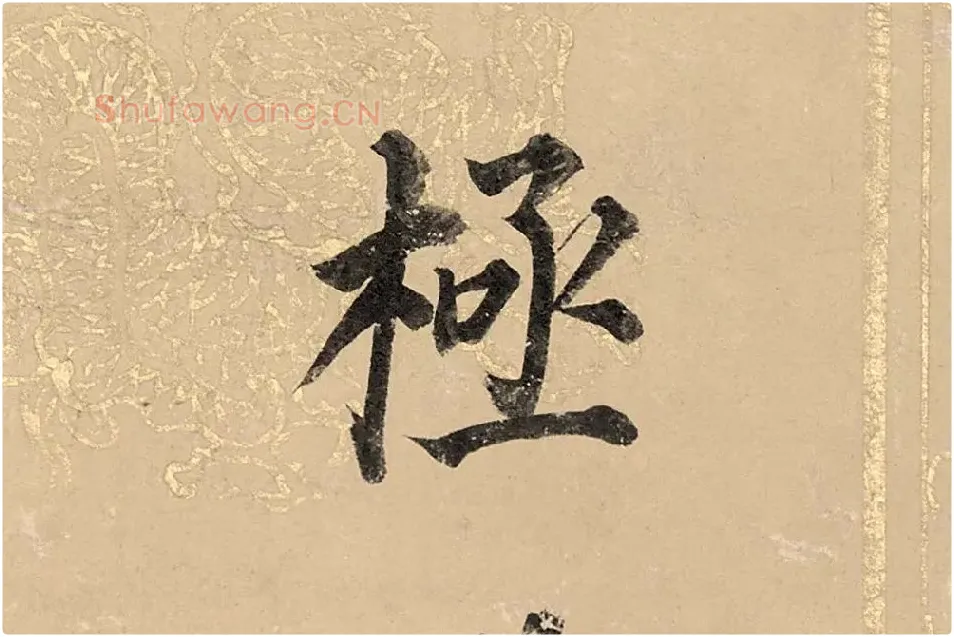 Shufawang.CN
極